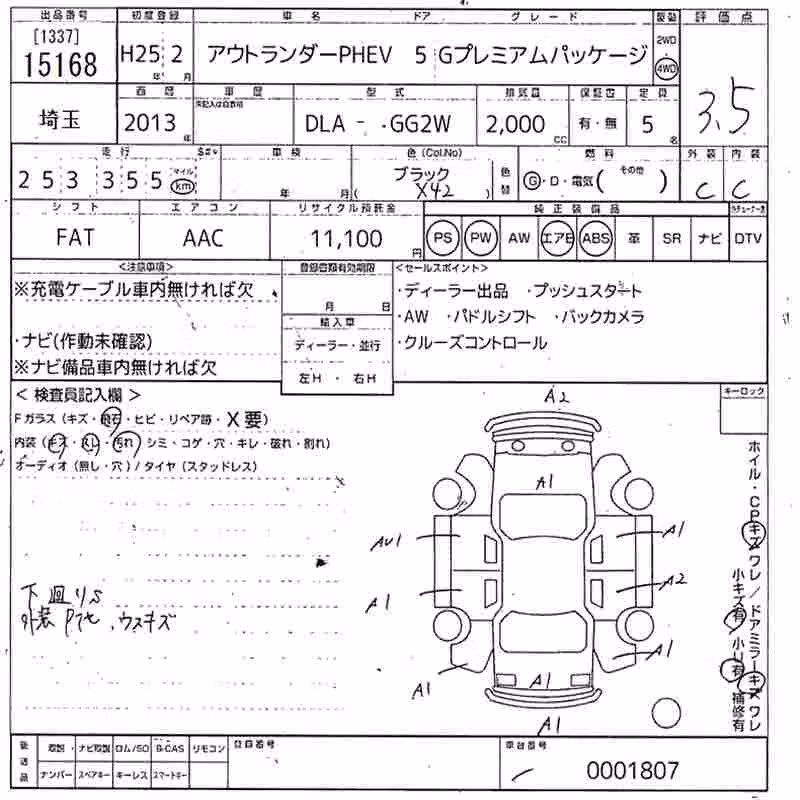 出品番号 初度登録 車名 ドア グレード 駆動 評価点
[1337]
15168 H25年 2月 アウトランダーPHEV 5 Gプレミアムパッケージ 2WD 4WD 3.5
西暦 車歴 型式 排気量 保証書 定員
埼玉 2013年 DLA - GG2W 2,000CC 有・無 5名
走行 車検 色(Col.No) 燃料 外装 内装
253355 マイル km 年 月 ブラック (X42) 色替 G・D・電気( その他 ) C C
シフト エアコン リサイクル預託金 純正装備品
FAT AAC 11,100円 PS PW AW エアB ABS 革 SR ナビ DTV
<注意事項> 登録書類有効期限 <セールスポイント>
※充電ケーブル車内無ければ欠 月 日 ・ディーラー出品 ・プッシュスタート
輸入車 ・AW ・パドルシフト ・バックカメラ
・ナビ(作動未確認) ディーラー・並行 ・クルーズコントロール
※ナビ備品車内無ければ欠 左H ・ 右H
< 検査員記入欄 > キーロック
Fガラス (キズ・飛石・ヒビ・リペア跡・X要)
内装 (キズ・スレ・汚れ・シミ・コゲ・穴・キレ・破れ・割れ)
オーディオ (無し・穴) / タイヤ (スタッドレス)
A2
A1
AU1 A1
A1 A2
A1 A1 A1
A1
下廻りS
外装Pアセ、ウスキズ
ホイル・CPキズ ワレ / ドアミラーキズ ワレ
小キズ有 小U有 補修有
後送品 取説 ナビ取説 ロム/SD B-CAS リモコン 登録番号 車台番号
ナンバー スペアキー キーレス スマートキー 0001807